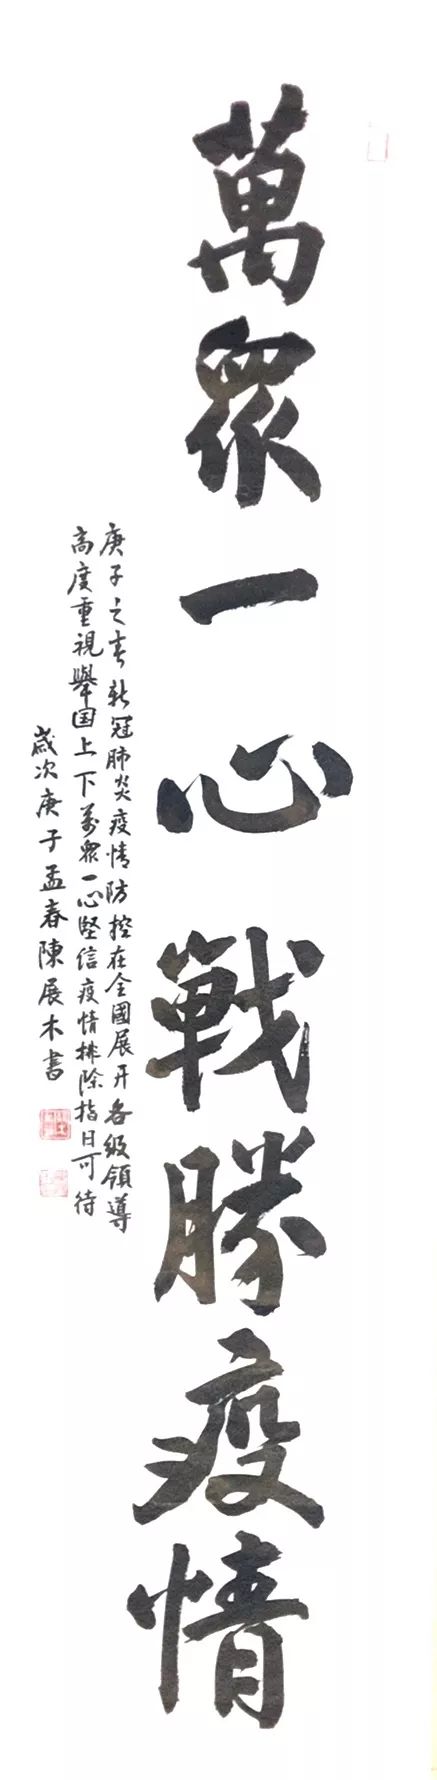 萬眾一心戰勝疫情
庚子之春新冠肺炎疫情防控在全國展开各级領導
高度重視舉国上下萬眾一心堅信疫情排除指日可待
歲次庚子孟春陳展木書